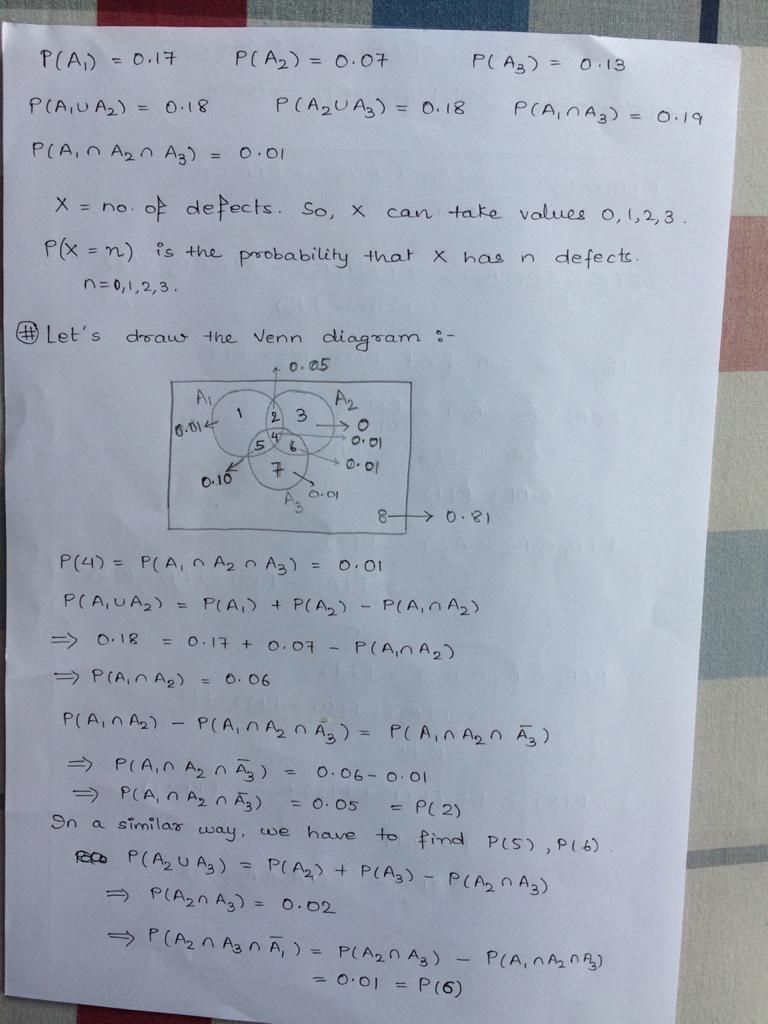 P(A₁) = 0.17 P(A₂) = 0.07 P(A₃) = 0.13
P(A₁∪A₂) = 0.18 P(A₂∪A₃) = 0.18 P(A₁∩A₃) = 0.19
P(A₁∩A₂∩A₃) = 0.01
X = no. of defects. So, X can take values 0,1,2,3.
P(X=n) is the probability that X has n defects.
n=0,1,2,3.
# Let's draw the Venn diagram :-
0.05
A₁ A₂
1 2 3
0.01 0
4 0.01
5 6
0.01
7
0.10 0.01
A₃
8 → 0.81
P(4) = P(A₁∩A₂∩A₃) = 0.01
P(A₁∪A₂) = P(A₁) + P(A₂) - P(A₁∩A₂)
⇒ 0.18 = 0.17 + 0.07 - P(A₁∩A₂)
⇒ P(A₁∩A₂) = 0.06
P(A₁∩A₂) - P(A₁∩A₂∩A₃) = P(A₁∩A₂∩A̅₃)
⇒ P(A₁∩A₂∩A̅₃) = 0.06-0.01
⇒ P(A₁∩A₂∩A̅₃) = 0.05 = P(2)
In a similar way, we have to find P(5), P(6).
P(A₂∪A₃) = P(A₂) + P(A₃) - P(A₂∩A₃)
⇒ P(A₂∩A₃) = 0.02
⇒ P(A₂∩A₃∩A̅₁) = P(A₂∩A₃) - P(A₁∩A₂∩A₃)
= 0.01 = P(6)